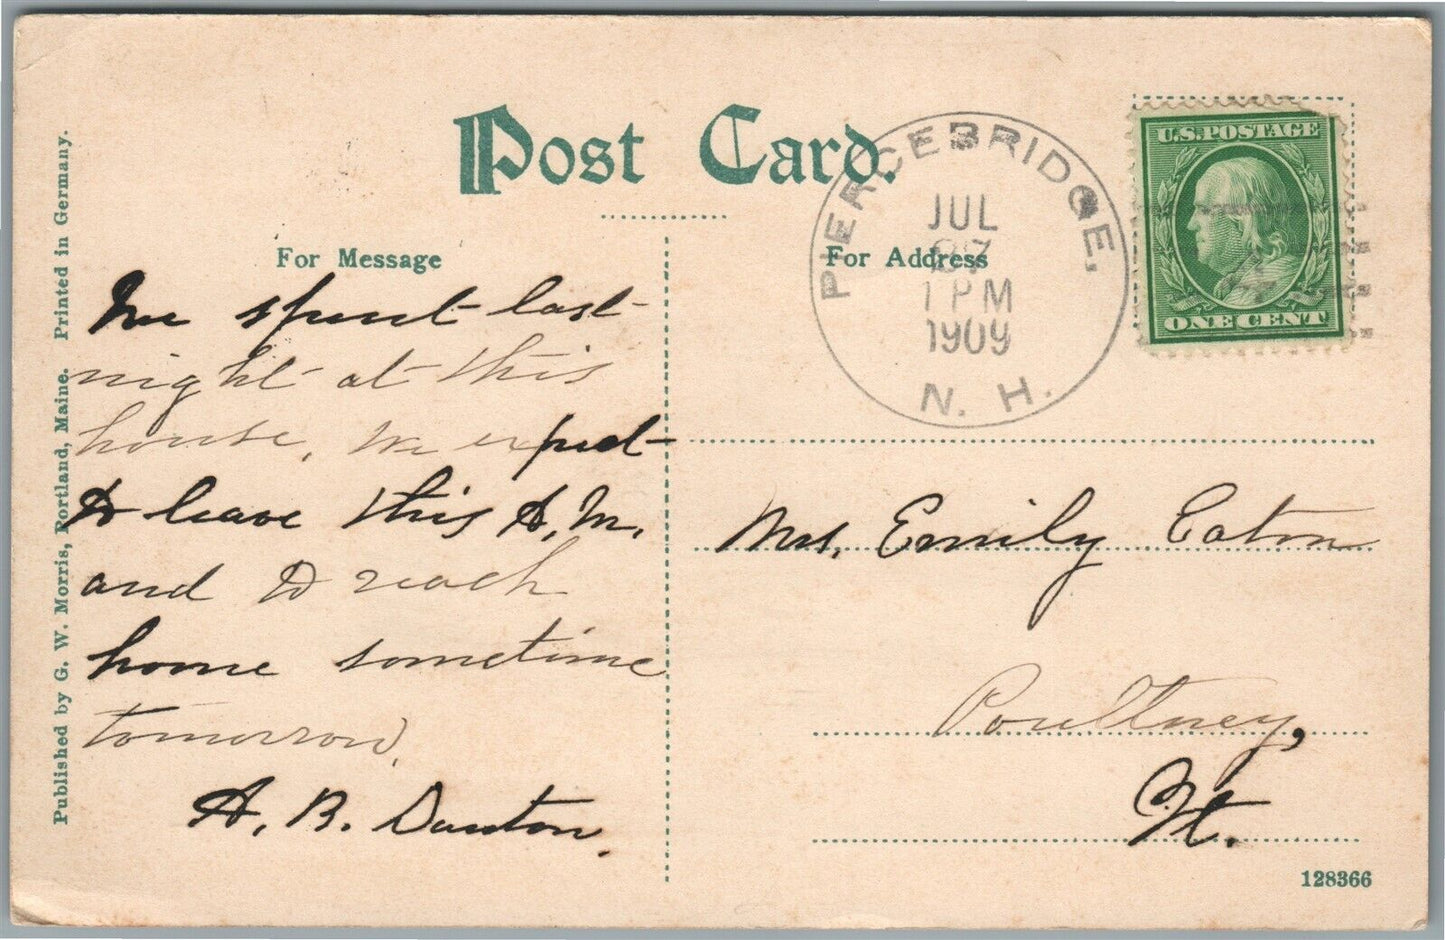 Post Card.
For Message
For Address
PIERCEBRIDGE,
JUL
27
1 PM
1909
N. H.
U.S. POSTAGE
ONE CENT
We spent last
night at this
house, we expect
to leave this A.M.
and to reach
home sometime
tomorrow.
A. B.
Mrs. Emily Eaton
Poultney,
Vt.
Published by G. W. Morris, Portland, Maine. Printed in Germany.
128366